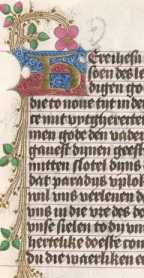 Here ihesu
soen des le
digen go
die to none tut in de
re mit vytghererter
men gode den vader
gauest dynen geest
mitten slotel dyns
dat paradys vplok
wil vns verlenen d
vns in die vre des d
vnse sielen to dy vm
hertelike doeste com
du die waerliken et